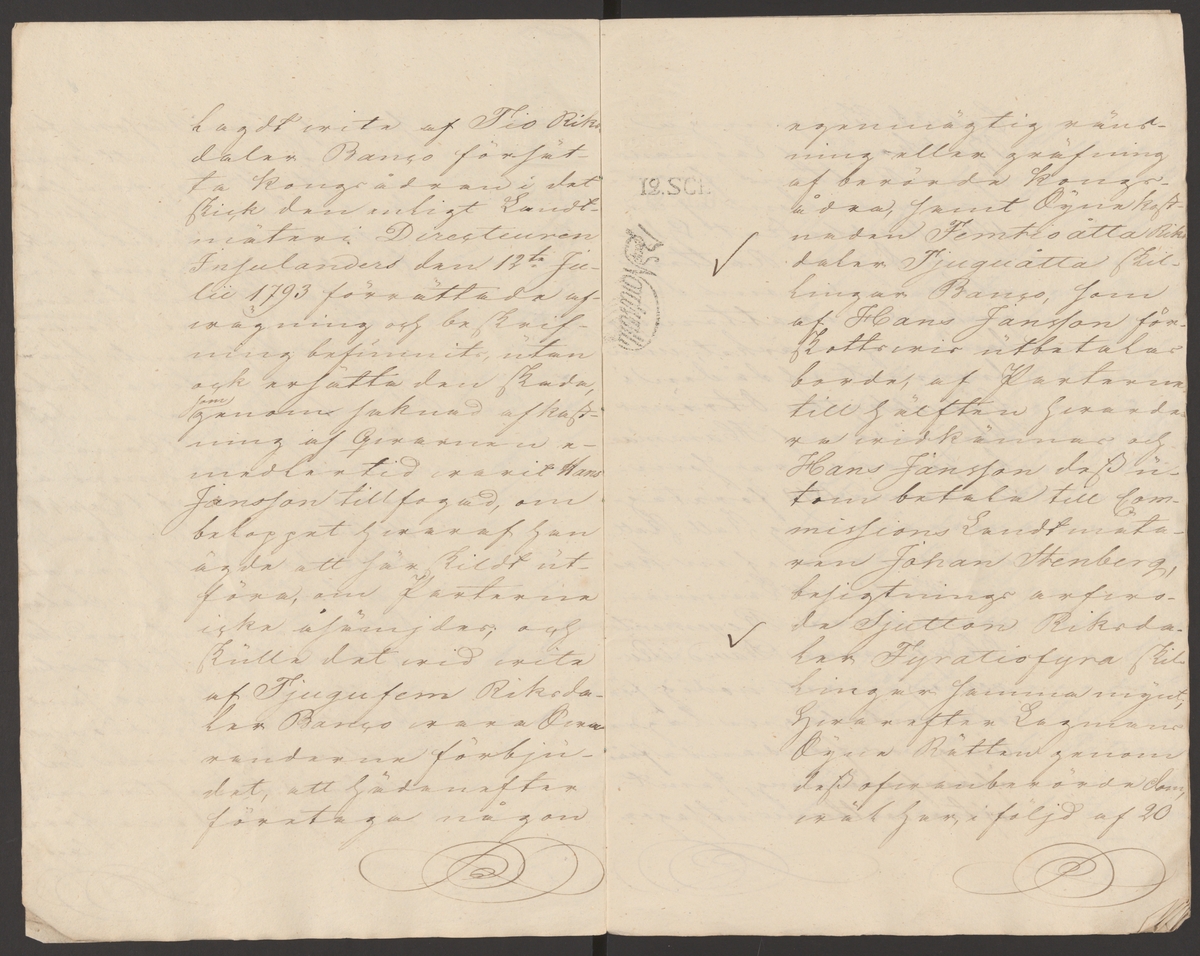 lagdt wite af Tio Riks
daler Banco försät-
ta kongsådran i det
skick den enligt Landt-
mäteri Directeuren
Insulanders den 12te Ju-
lii 1793 förrättade af-
wägning och beskrif-
ning befunnits, utan
ock ersätta den skada,
som
genom saknad afkast-
ning af Qwarnen e-
medlertid warit Hans
Jansson tillfogad, om
beloppet hwaraf han
ägde att särskildt ut-
föra, om Parterne
icke åsämjdes; och
skulle det wid wite
af Tjugufem Riksda-
ler Banco wara
randerne förbju-
det, att hädanefter
företaga någon
12. SCI.
egenmägtig räns-
ning eller gräfning
af berörde kongs-
ådra, samt Synekost-
naden Femtioåtta Riks
daler Tjuguåtta skil-
lingar Banco, som
af Hans Jansson för-
skottswis utbetalas
borde, af Parterne
till hälften hwarde-
ra widkännas och
Hans Jansson dess u-
tom betala till Com-
missions Landtmäta-
ren Johan Stenberg,
besigtnings arfwo-
de Sjutton Riksda-
ler Fyratiofyra skil-
lingar samma mynt,
Hwarefter Lagmans
Syne Rätten genom
dess ofwanberörde dom,
wäl har, i följd af 20